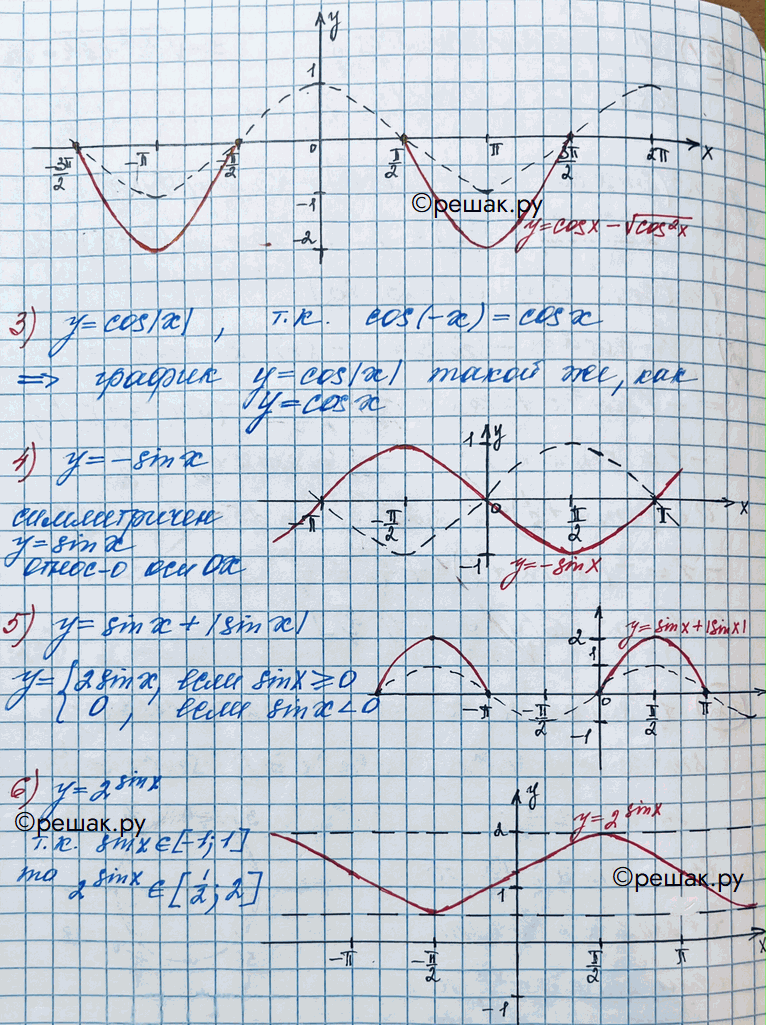 y
1
-3π/2 -π -π/2 0 π/2 π 3π/2 2π x
-1
©решак.ру
-2
y=cosx-√cos²x
3) y=cos|x| , т.к. cos(-x)=cosx
=> график y=cos|x| такой же, как
y=cosx
4) y=-sinx
1 y
симметричен
y=sinx
относ-о оси Ox
-π -π/2 0 π/2 π x
-1
y=-sinx
5) y=sinx+|sinx|
2 y=sinx+|sinx|
1
y={2sinx, если sinx≥0
0 , если sinx<0
-π -π/2 0 π/2 π
-1
6) y=2^sinx
y
©решак.ру
2 y=2^sinx
т.к. sinx∈[-1;1]
то 2^sinx∈[1/2;2]
1
©решак.ру
-π -π/2 π/2 π x
-1